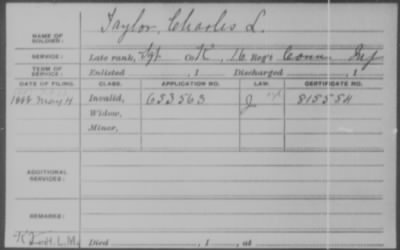 Taylor, Charles L.
NAME OF SOLDIER:
SERVICE: Late rank, Sgt Co K, 16 Reg't Conn Inf
TERM OF SERVICE: Enlisted , 1 Discharged , 1
DATE OF FILING. CLASS. APPLICATION NO. LAW. CERTIFICATE NO.
1888 May 4 Invalid, 653563 J 815554
Widow,
Minor,
ADDITIONAL SERVICES:
REMARKS:
H.L.M. Died , 1 , at